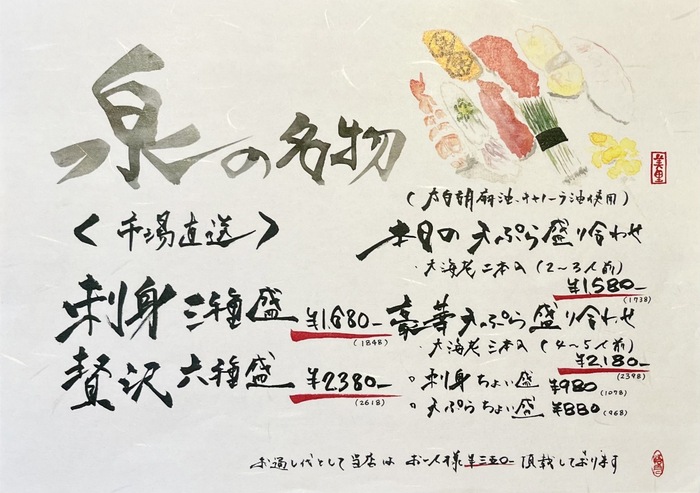 泉の名物
〈市場直送〉
刺身三種盛 ¥1680-
(1848)
贅沢六種盛 ¥2380-
(2618)
(太白胡麻油、キャノーラ油使用)
本日の天ぷら盛り合わせ
・大海老二本入(2〜3人前)
¥1580-
(1738)
豪華天ぷら盛り合わせ
・大海老三本入(4〜5人前)
¥2180-
(2398)
○刺身ちょい盛 ¥980
(1078)
○天ぷらちょい盛 ¥880
(968)
お通し代として当店は お一人様¥三五〇-頂戴しております